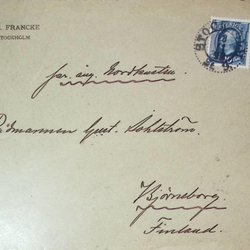 FRANCKE
STOCKHOLM
STOC
per ång. Nordkusten
Rådmannen Gust. Sohlström.
Björneborg.
Finland.